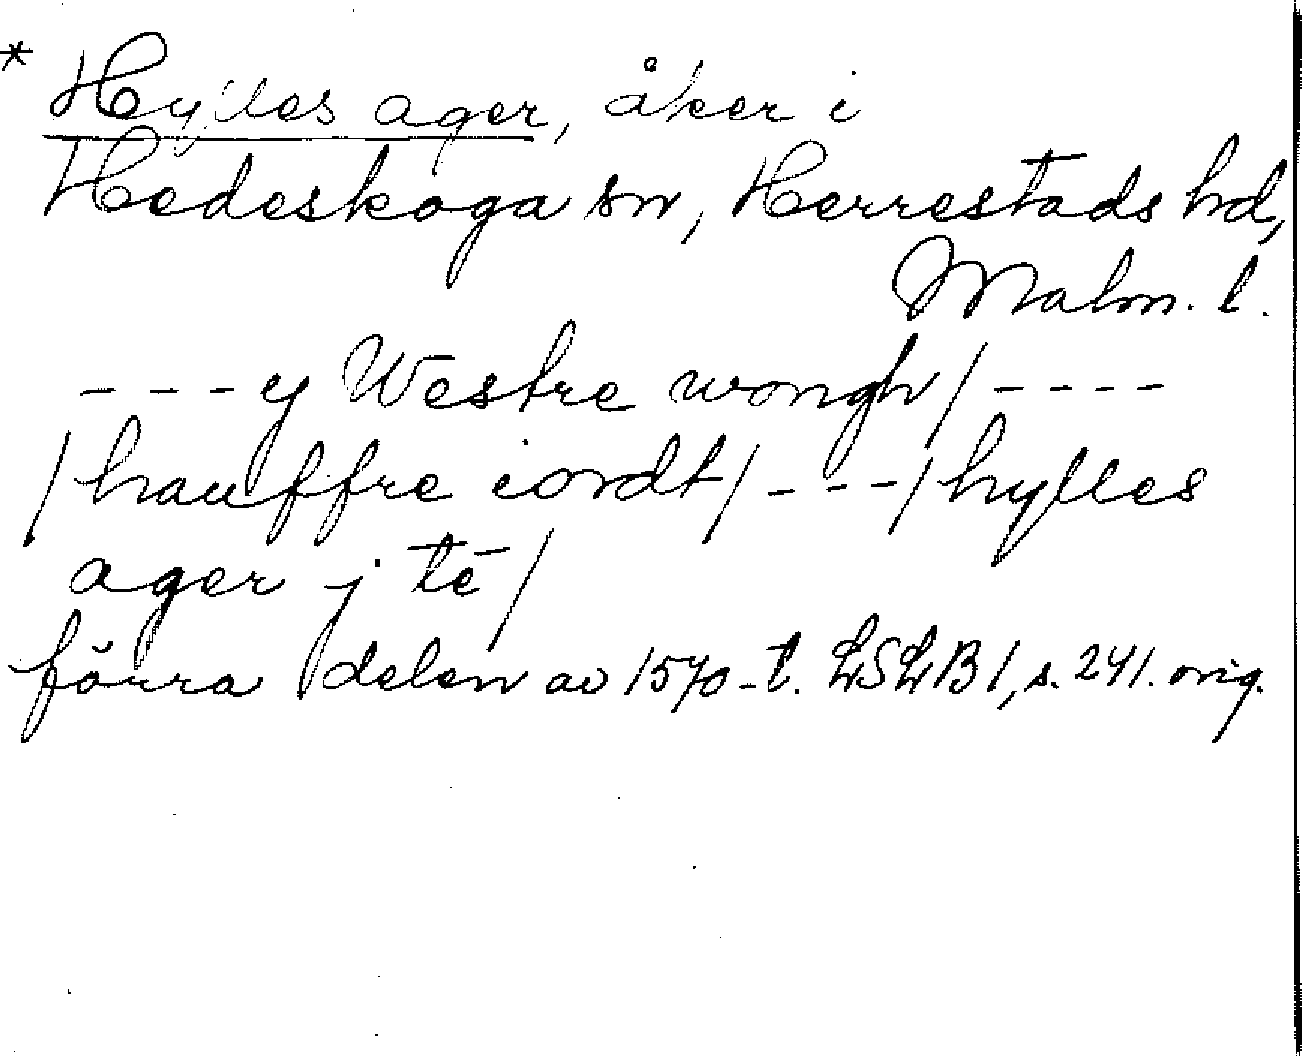 * Hylles ager, åker i
Hedeskoga sn, Herrestads hd,
Malm. l.
- - - ij Westre wongh / - - - -
/ hauffre iordt / - - - / hylles
ager j tē /
förra delen av 1570-t. LSLB 1, s. 241. orig.